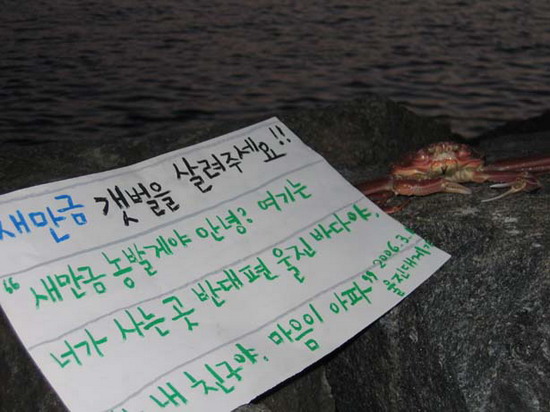 새만금 갯벌을 살려주세요!!
"새만금 농발게야 안녕? 여기는
너가 사는 곳 반대편 울진 바다야.
내 친구야, 마음이 아파" 2006.3.
울진대게